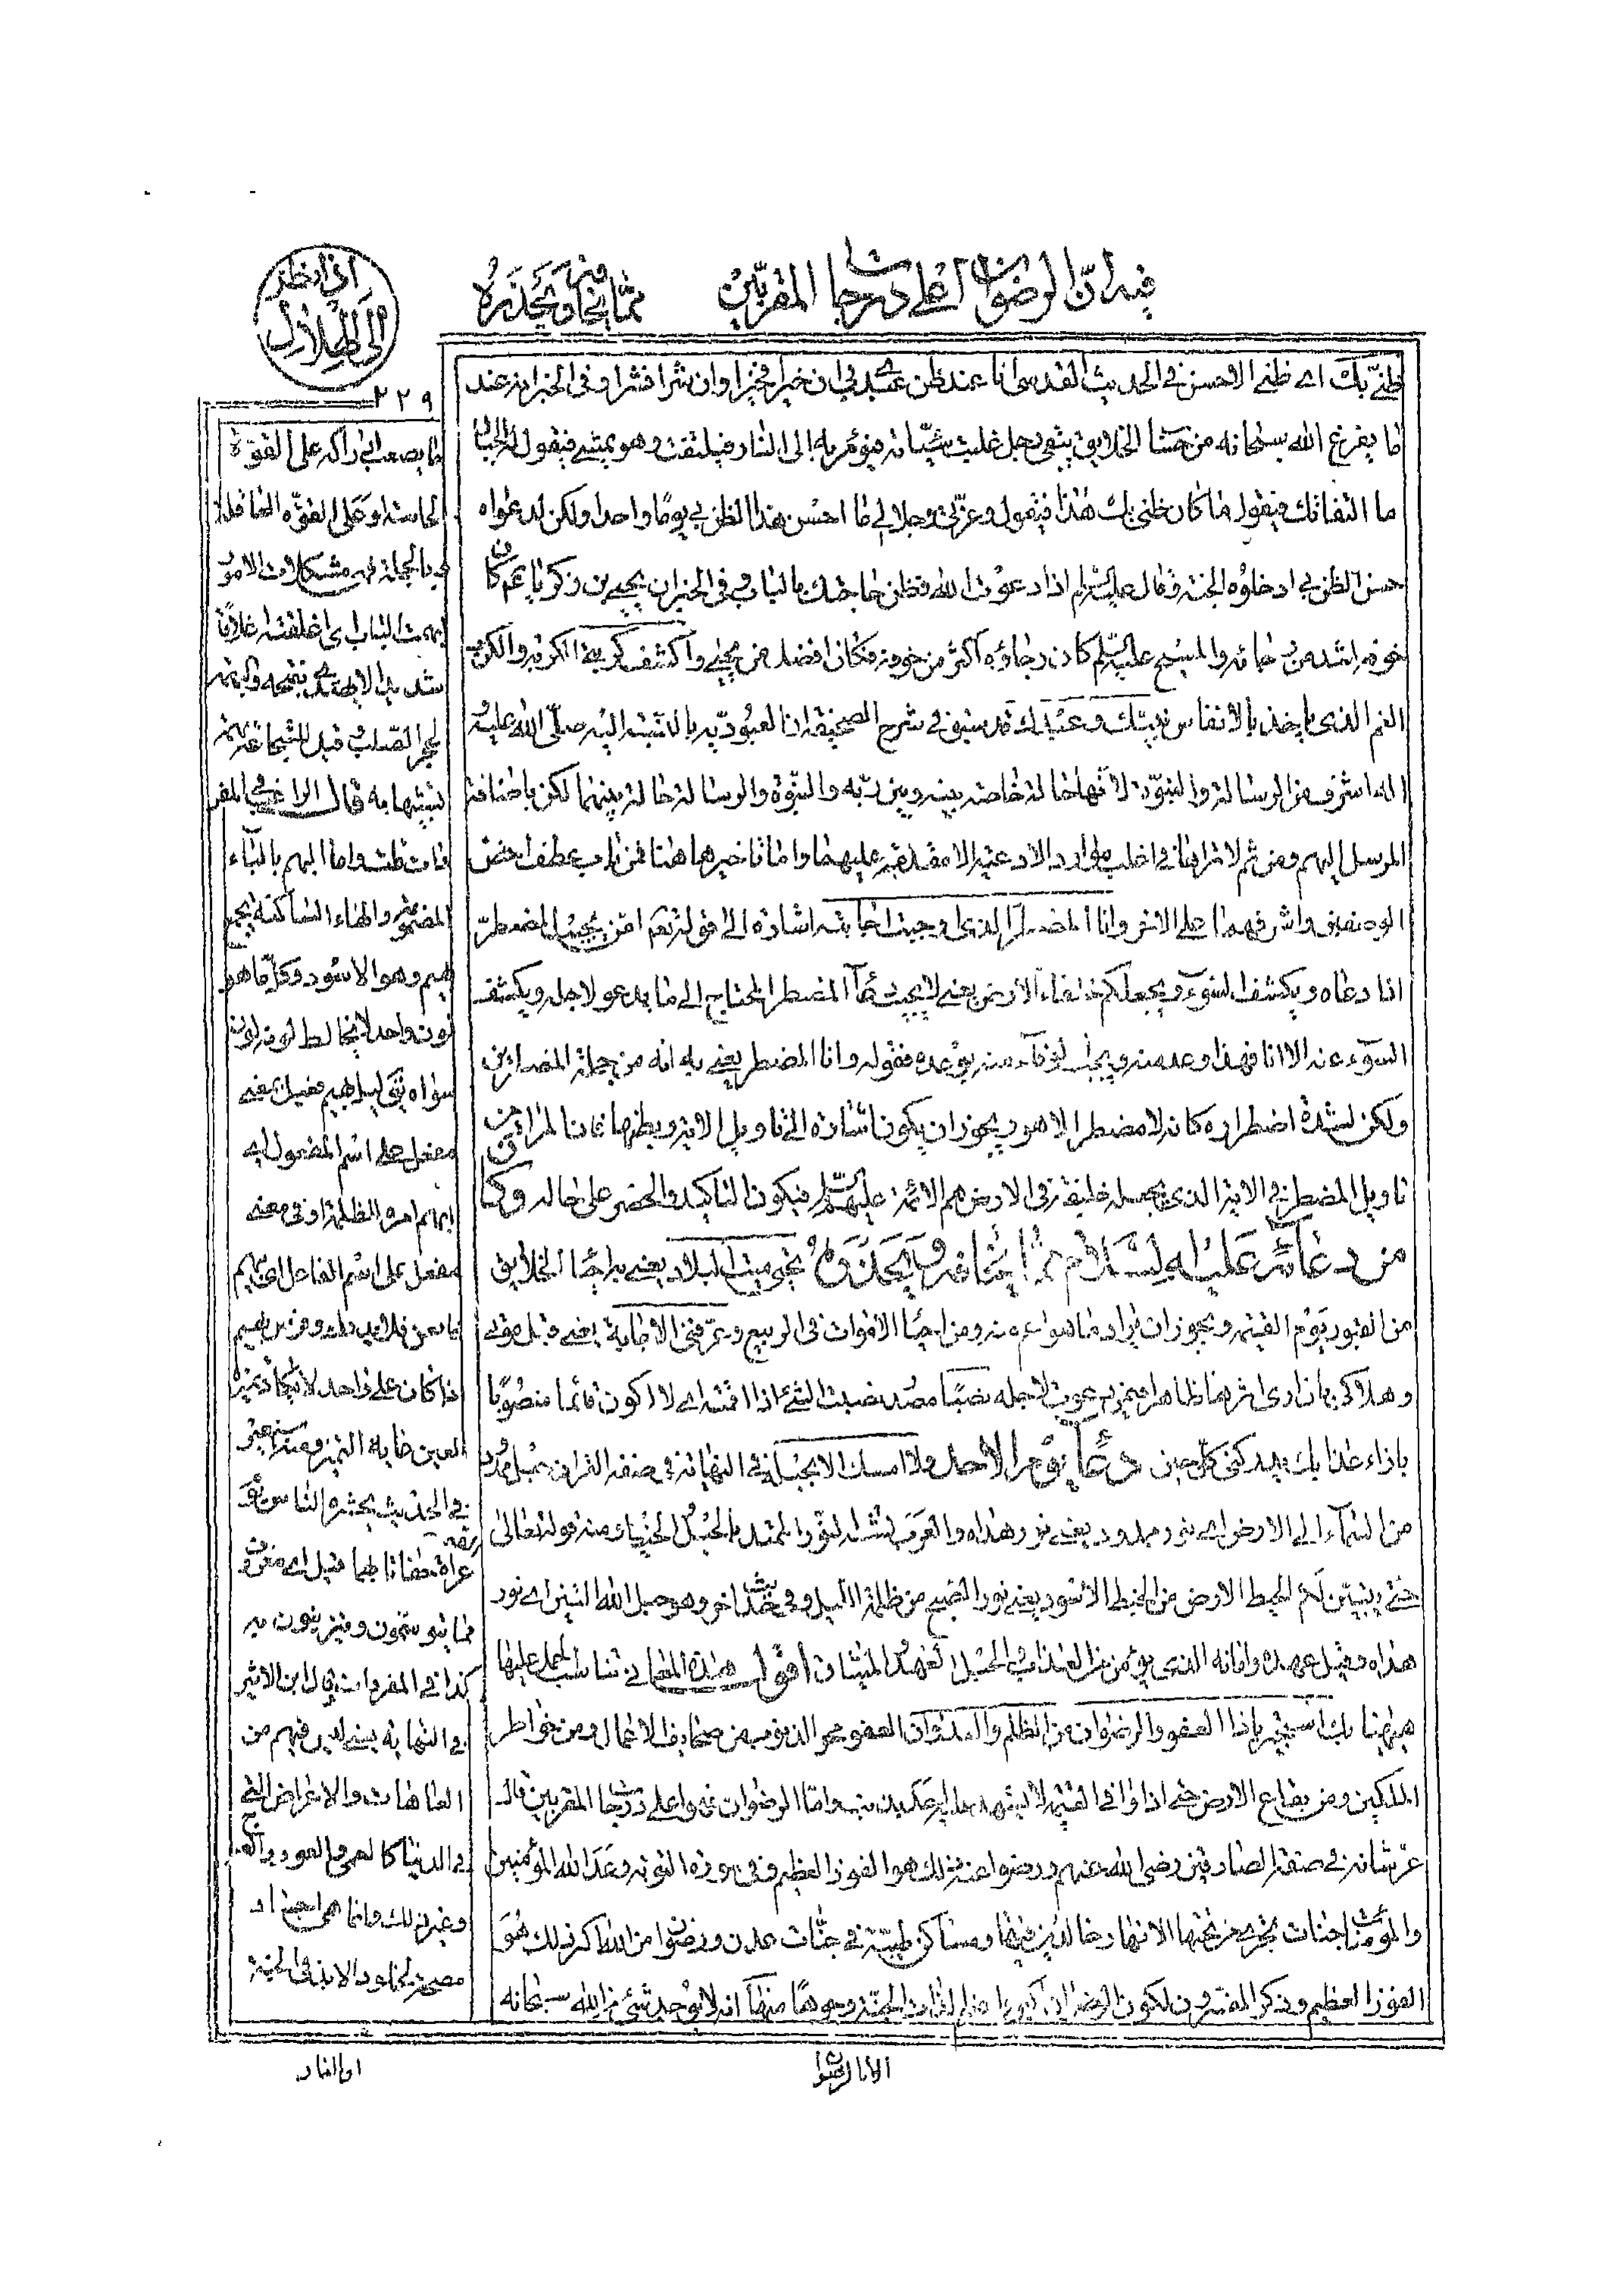 فيه انّ الرضوان اعلى درجات المقربين
ممّا يخافه ويحذره
٢٢٩
ظنّي بك اي ظني الاحسن في الحديث القدسي انا عند ظن عبدي بي ان خيرا فخيرا وان شرا فشرا وفي الخبر انه عند
ما يفرغ الله سبحانه من حساب الخلايق يبقى رجل غلبت سيّئاته فيؤمر به الى النار فيلتفت وهو يمشي فيقول له الجبار
ما التفاتك فيقول ما كان ظني بك هذا فيقول وعزّتي وجلالي ما احسن هذا الظن بي يوما واحدا ولكن لدعواه
حسن الظن بي ادخلوه الجنة وقال عليه السّلم اذا دعوت الله فظن حاجتك بالباب وفي الخبر ان يحيى بن زكريا عم كان
خوفه اشد من رجائه والمسيح عليه السّلم كان رجاؤه اكثر من خوفه فكان افضل من يحيى واكشف كربتي الكربة والكرب
الغم الذي ياخذ بالانفاس نبيّك وعبدك قد سبق في شرح الصحيفة ان العبوديّة بالنسبة اليه صلّى الله عليه
اله اشرف من الرسالة والنبوّة لانّها حالة خاصة بينه وبين ربّه والنبوّة والرسالة حالة بينهما لكن باضافة
المرسل اليهم ومن ثم لا تراها في اغلب موارد الادعية الا مقدمة عليهما واما تاخيرها هنا فمن باب عطف احد
الوصفين واشرفهما على الاخر وانا المضطر الذي وجبت اجابته اشارة الى قوله تعم امّن يجيب المضطرّ
اذا دعاه ويكشف السّوء ويجعلكم خلفاء الارض يعني لا يجيب دعاء المضطر المحتاج الى ما يدعو لاجله ويكشف
السّوء عنه الا انا فهذا وعد منه ويجب الوفاء منه بوعده فقوله وانا المضطر يعني به انه من جملة المضطرين
ولكن لشدة اضطراره كانه لا مضطر الا هو ويجوز ان يكون اشارة الى تاويل الاية وبطنها فان المراد من
تاويل المضطر في الاية الذي يجعله خليفة في الارض هم الائمة عليهم السّلم فيكون التاكيد والحصر على حاله وكان
من دعائه عليه السلام ممّا يخافه ويحذره يحيى ميت البلاد يعني به احياء الخلايق
من القبور يوم القيمة ويجوز ان يراد ما هو اعم منه ومن احياء الاموات في الربيع وتعرّفني الاجابة يعني قبل موتي
وهلاكي بان ارى اثرها ظاهرا فيمن دعوت لاجله نصبًا مصدر نصبت الشئ اذا اقمته اي لا اكون قائما منصوبًا
بازاء عذابك يدركني كل حين دعاء يوم الاحد ولا امسك الا بحبله في النهاية في صفة القران حبل ممدود
من السّماء الى الارض اي نور ممدود يعني نور هداه والعرب تشبه النّور الممتد بالحبل والخيط ومنه قوله تعالى
حتى يتبيّن لكم الخيط الابيض من الخيط الاسود يعني نور الصبح من ظلمة الليل وفي حديث اخر وهو حبل الله المتين اي نور
هداه وقيل عهده وامانه الذي يؤمن من العذاب والحبل العهد والميثاق اقول هذه المعاني تناسب الحمل عليها
هيهنا بك استجير يا ذا العفو والرضوان من الظلم والعدوان العفو محو الذنوب من صحايف الاعمال ومن خواطر
الملكين ومن بقاع الارض حتى اذا وافى القيمة لا يشهد عليه احد بذنب واما الرضوان فهو اعلى درجات المقربين قال
عزّ شانه في صفة الصادقين رضي الله عنهم ورضوا عنه ذلك هو الفوز العظيم وفي سورة التوبة وعد الله المؤمنين
والمؤمنات جنات تجري من تحتها الانهار خالدين فيها ومساكن طيّبة في جنّات عدن ورضوان من الله اكبر ذلك هو
الفوز العظيم وذكر المفسرون لكون الرضوان اكبر من لذات الجنة وجوها منها انه لا يوجد شئ من الله سبحانه
الا الرضوان
ما يصعب ادراكه على القوة
الحاسة او على القوّة العاقلة
وبالجملة فهي مشكلات الامور
ابهمت الباب اي اغلقته اغلاقا
قال الراغب في المفردات
قلت واما البهم بالباء
المضمومة والهاء الساكنة فجمع
بهيم وهو الاسود وكل ما هو
لون واحد لا يخالط لونه لون
سواه يقال ليل بهيم فعيل بمعنى
مفعل على اسم المفعول اي
ابهم امره للظلمة او في معنى
مفعل على اسم الفاعل
في الحديث يحشر الناس
عراة حفاة بهما قيل اي
مما يتوسّمون ويتزينون به
كذا في المفردات وقال ابن الاثير
في النهاية يعني ليس فيهم من
العاهات والاعراض التي
في الدنيا كالعمى والعور والعرج
وغير ذلك وانما هي اجساد
مصححة لخلود الابد في الجنة
او النار